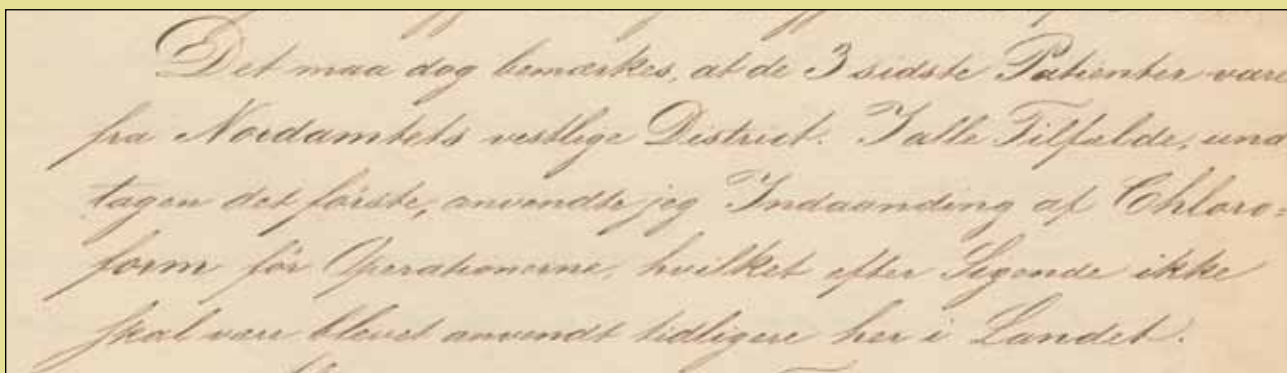 Det maa dog bemærkes, at de 3 sidste Patienter vare
fra Nordamtets vestlige District. I alle Tilfælde, und
tagen det første, anvendte jeg Indaanding af Chloro-
form før Operationerne, hvilket efter Sigende ikke
skal være blevet anvendt tidligere her i Landet.